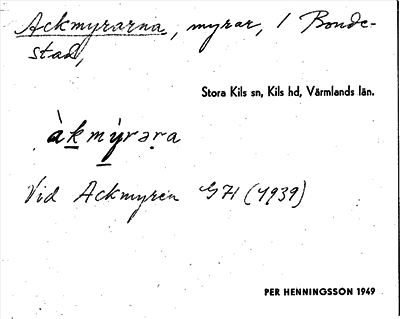 Ackmyrarna, myrar, 1 Bonde-
stad,
Stora Kils sn, Kils hd, Värmlands län.
àkmýrəṛa
Vid Ackmyren G71 (1939)
PER HENNINGSSON 1949